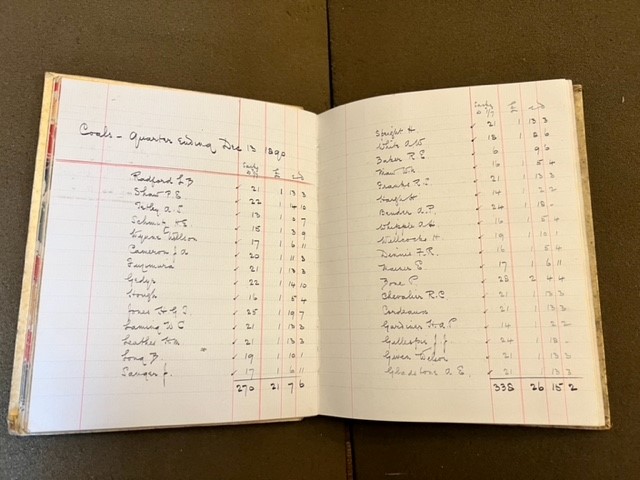 Coals - Quarter Ending Dec 13 1890
Sacks @ 1/7 £ s d
Radford L B 21 1 13 3
Shaw P. E. 22 1 14 10
13 1 0 7
Schmidt 15 1 3 9
Wynne Willson 17 1 6 11
Cameron J A 20 1 11 8
21 1 13 3
Gedye 22 1 14 10
Hough 16 1 5 4
Jones H G S. 25 1 19 7
Laming W C 21 1 13 3
Leather 21 1 13 3
Long B. " 19 1 10 1
Sanger J. 17 1 6 11
270 21 7 6
Sacks @ 1/7 £ s d
Speight H 21 1 13 3
White A W 18 1 8 6
Baker P. E. 6 9 6
Maw W 16 1 5 4
Franks R. S. 21 1 13 3
Haigh H 14 1 2 2
Bender A. P. 24 1 18 -
16 1 5 4
Wellcoche H 19 1 10 1
Dennis F. R. 16 1 5 4
17 1 6 11
Bone P. 28 2 4 4
Chevalier R. C. 21 1 13 3
Cordeaux 21 1 13 3
Gardiner 14 1 2 2
Gillespie J J 24 1 18 -
Gower Wilson 21 1 13 3
Gladstone A. E. 21 1 13 3
338 26 15 2